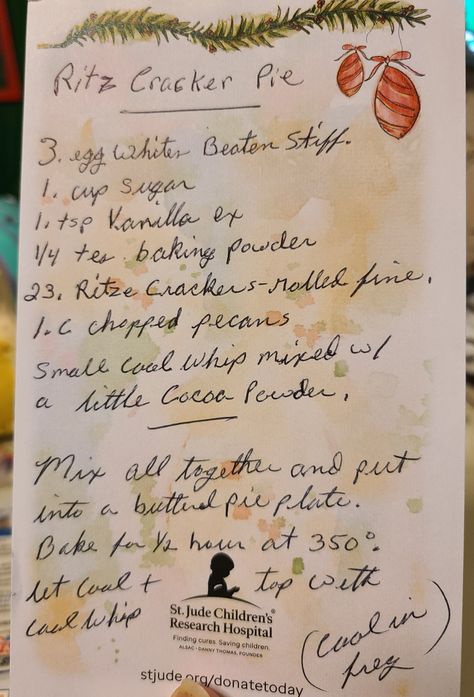 Ritz Cracker Pie
3. egg whites Beaten Stiff.
1. cup Sugar
1. tsp Vanilla ex
1/4 tes baking powder
23. Ritze Crackers-rolled fine.
1. C chopped pecans
Small cool whip mixed w/
a little Cocoa Powder.
Mix all together and put
into a butterd pie plate.
Bake for 1/2 hour at 350°.
let cool + top with
cool whip
(cool in
frez)
St. Jude Children's®
Research Hospital
Finding cures. Saving children.
ALSAC • DANNY THOMAS, FOUNDER
stjude.org/donatetoday